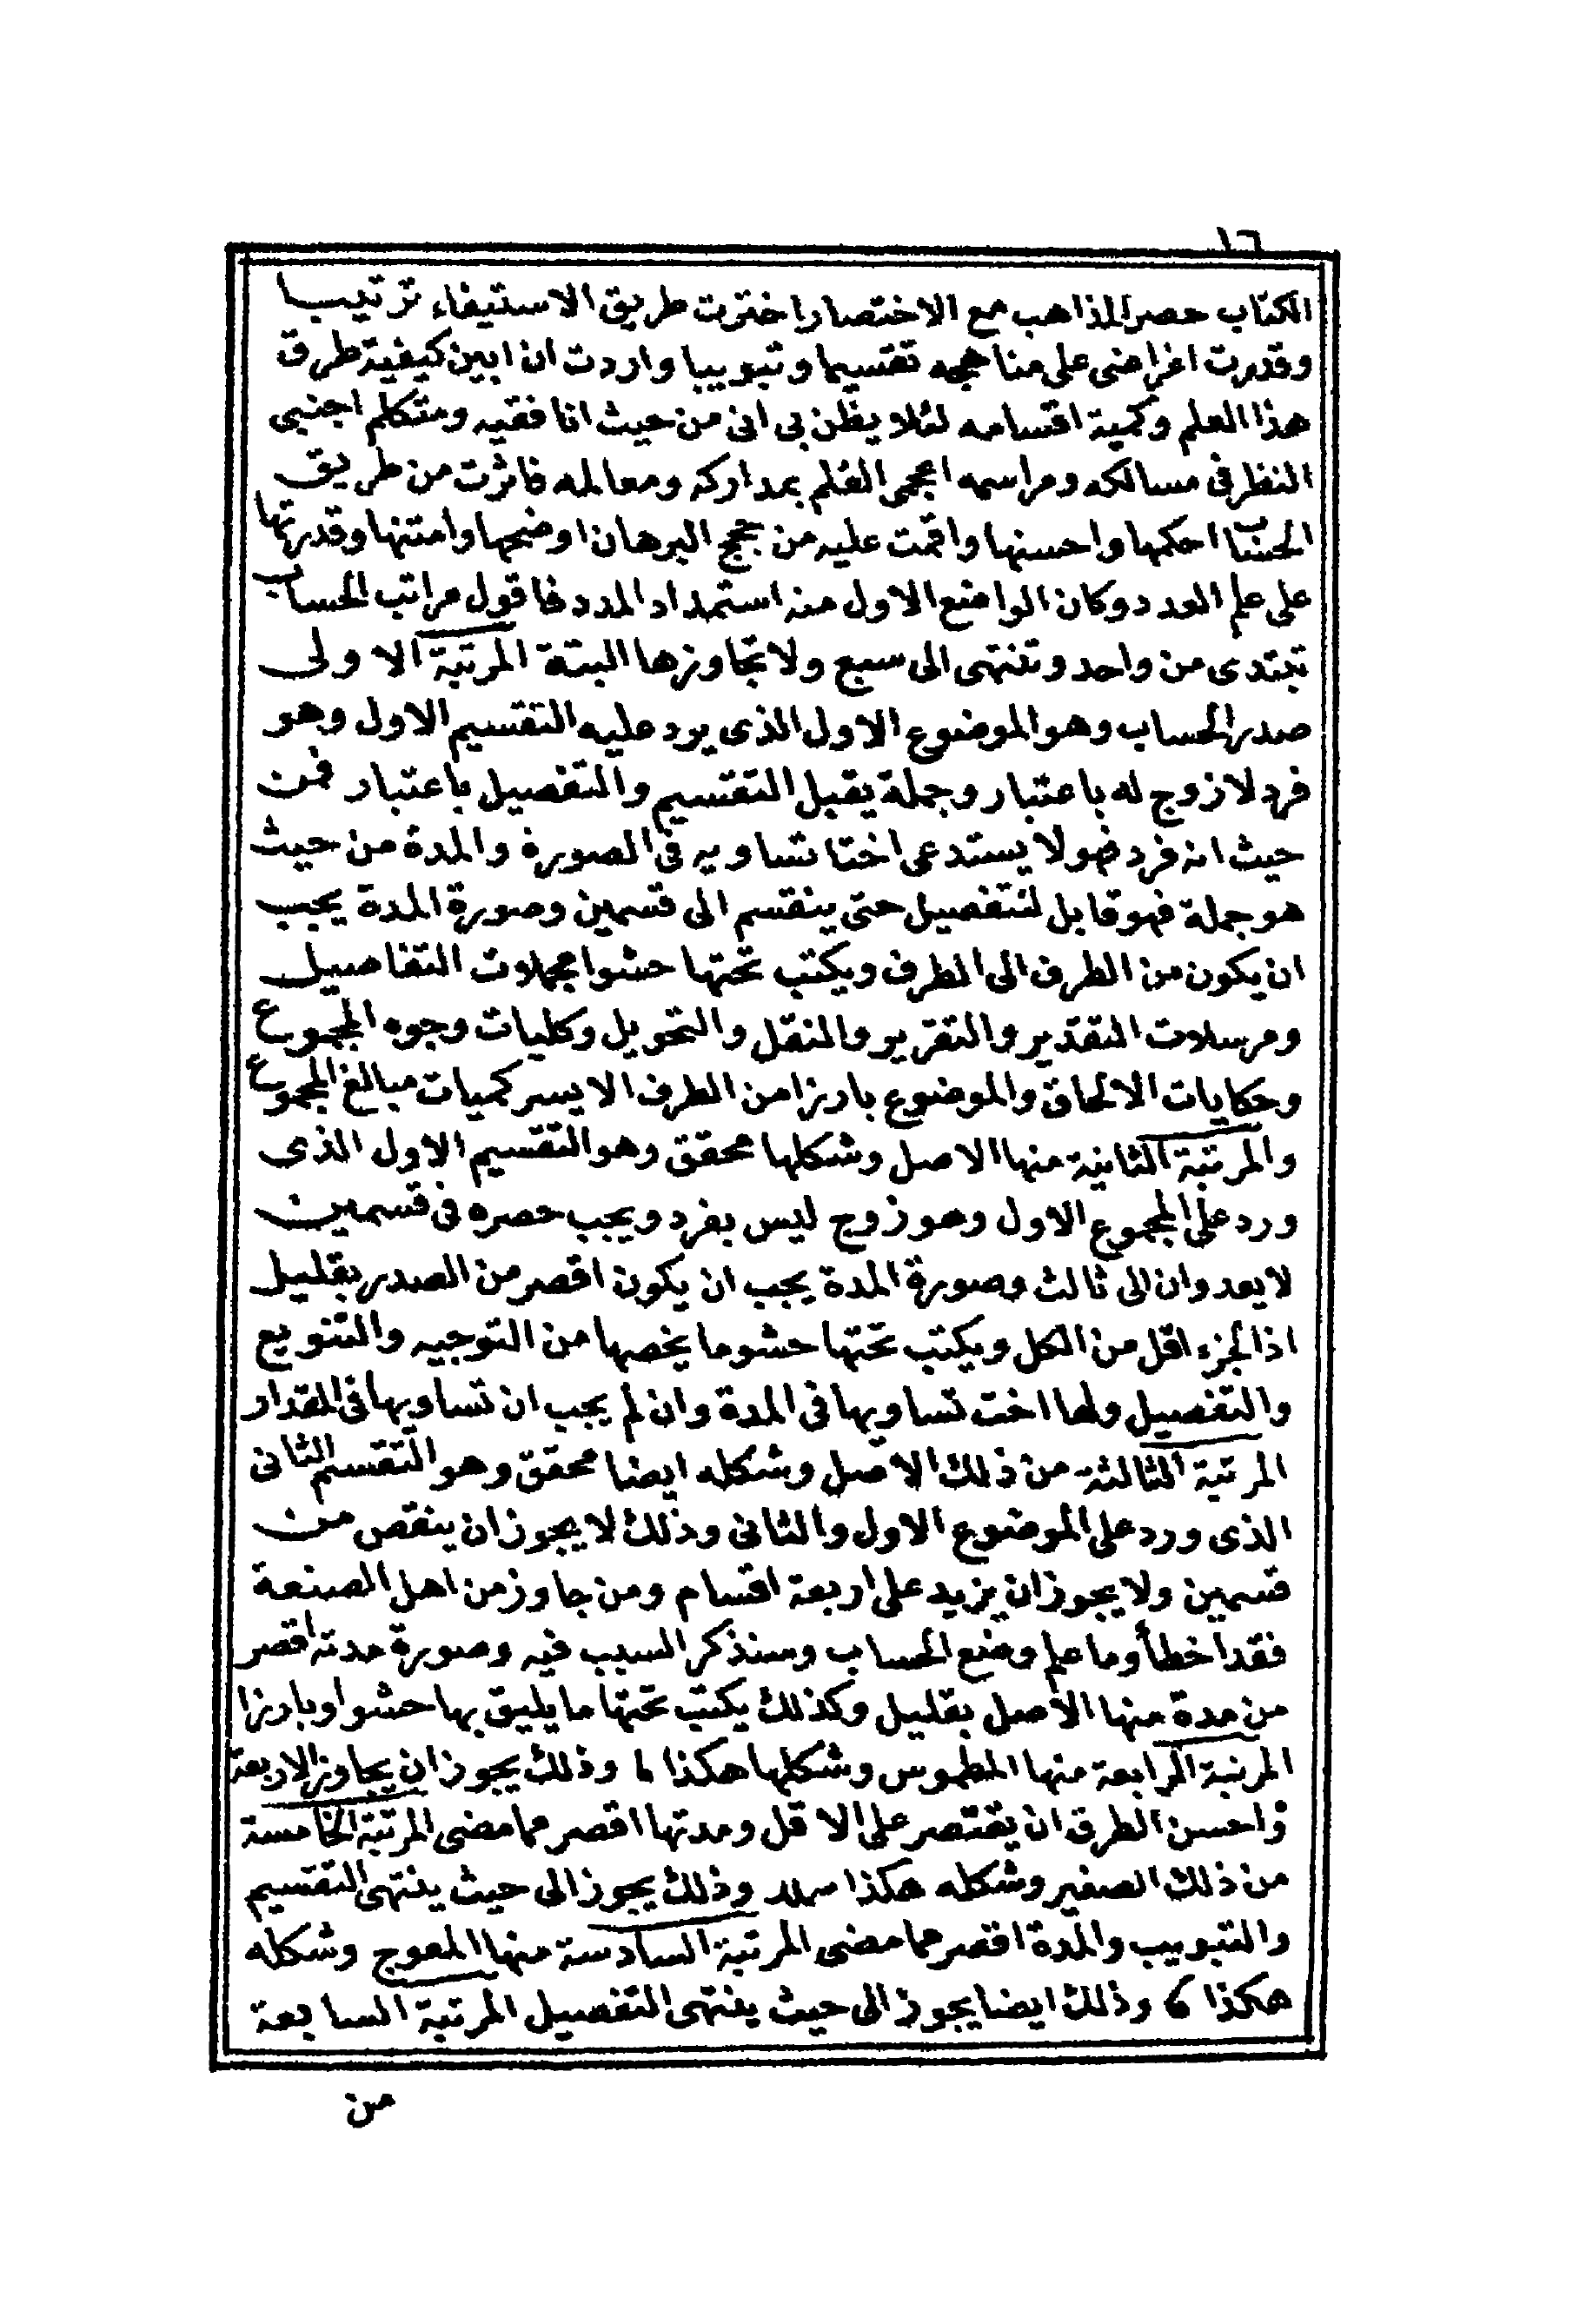 ١٦
الكتاب حصر المذاهب مع الاختصار اخترت طريق الاستيفاء ترتيبا
وقدرت اغراضى على مناهجه تقسيما وتبويبا واردت ان ابين كيفية طرق
هذا العلم وكمية اقسامه لئلا يظن بى انى من حيث انا فقيه ومتكلم اجنبى
النظر فى مسالكه ومراسمه اعجمى القلم بمداركه ومعالمه فاثرت من طريق
الحساب احكمها واحسنها واقمت عليه من حجج البرهان اوضحها وامتنها وقدرتها
على علم العدد وكان الواضع الاول منه استمداد المدد فاقول مراتب الحساب
تبتدى من واحد وتنتهى الى سبع ولا تجاوزها البتة المرتبة الاولى
صدر الحساب وهو الموضوع الاول الذى يرد عليه التقسيم الاول وهو
فرد لا زوج له باعتبار وجملة يقبل التقسيم والتفصيل باعتبار فمن
حيث انه فرد فهو لا يستدعى اختا تساويه فى الصورة والمدة من حيث
هو جملة فهو قابل لتفصيل حتى ينقسم الى قسمين وصورة المدة يجب
ان يكون من الطرف الى الطرف ويكتب تحتها حشوا مجملات التفاصيل
ومرسلات التقدير والتقرير والنقل والتحويل وكليات وجوه المجموع
وحكايات الالحاق والموضوع بارزا من الطرف الايسر كميات مبالغ المجموع
والمرتبة الثانية منها الاصل وشكلها محقق وهو التقسيم الاول الذى
ورد على المجموع الاول وهو زوج ليس بفرد ويجب حصره فى قسمين
لا يعدوان الى ثالث وصورة المدة يجب ان يكون اقصر من الصدر بقليل
اذ الجزء اقل من الكل ويكتب تحتها حشو ما يخصها من التوجيه والتنويع
والتفصيل ولها اخت تساويها فى المدة وان لم يجب ان تساويها فى المقدار
المرتبة الثالثة من ذلك الاصل وشكله ايضا محقق وهو التقسيم الثانى
الذى ورد على الموضوع الاول والثانى وذلك لا يجوز ان ينقص من
قسمين ولا يجوز ان يزيد على اربعة اقسام ومن جاوز من اهل الصنعة
فقد اخطأ وما علم وضع الحساب وسنذكر السبب فيه وصورة مدته اقصر
من مدة منها الاصل بقليل وكذلك يكتب تحتها ما يليق بها حشوا وبارزا
المرتبة الرابعة منها المطموس وشكلها هكذا وذلك يجوز ان يجاوز الاربعة
واحسن الطرق ان يقتصر على الاقل ومدتها اقصر مما مضى المرتبة الخامسة
من ذلك الصغير وشكله هكذا وذلك يجوز الى حيث ينتهى التقسيم
والتبويب والمدة اقصر مما مضى المرتبة السادسة منها المعوج وشكله
هكذا وذلك ايضا يجوز الى حيث ينتهى التفصيل المرتبة السابعة
من